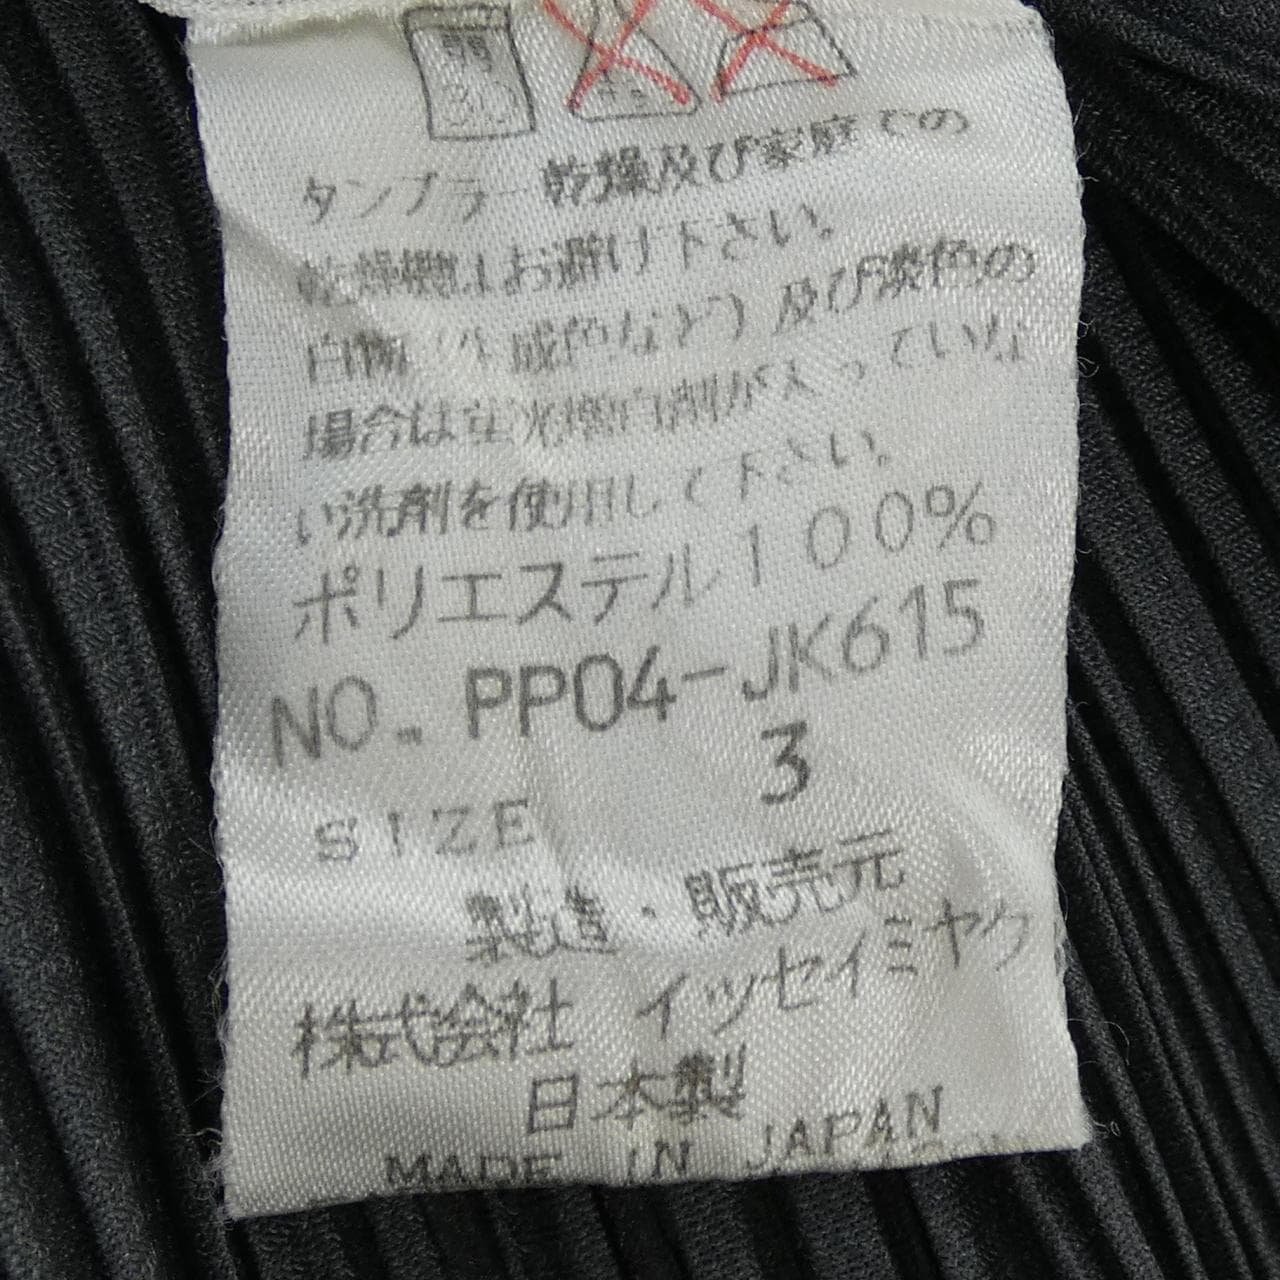 弱
タンブラー乾燥及び家庭での
乾燥機はお避け下さい。
白物(生成色など)及び淡色の
場合は蛍光増白剤が入っていな
い洗剤を使用して下さい。
ポリエステル100%
NO. PP04-JK615
SIZE 3
製造・販売元
株式会社 イッセイミヤケ
日本製
MADE IN JAPAN